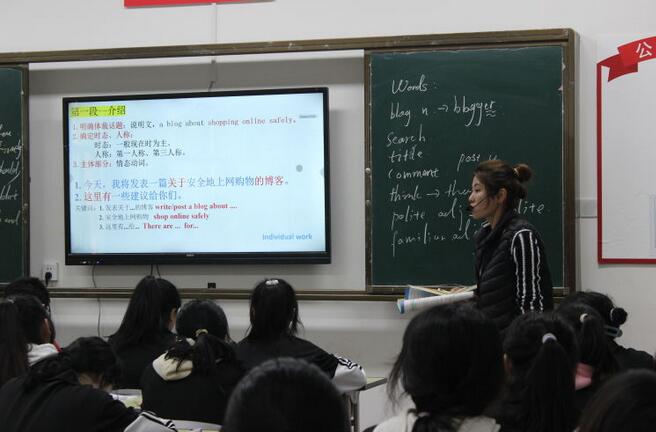 第一段—介绍
1. 明确体裁话题：说明文，a blog about shopping online safely。
2. 确定时态、人称：
时态：一般现在时为主。
人称：第一人称、第三人称。
3. 主体部分：情态动词。
1. 今天，我将发表一篇关于安全地上网购物的博客。
2. 这里有一些建议给你们。
关键词：1. 发表关于...的博客 write/post a blog about ....
2. 安全地上网购物 shop online safely
3. 这里有...给... There are ... for...
Individual work
Words:
blog n. → blogger
search
title
comment post
think → th
polite adj. lite
familiar adj.
公